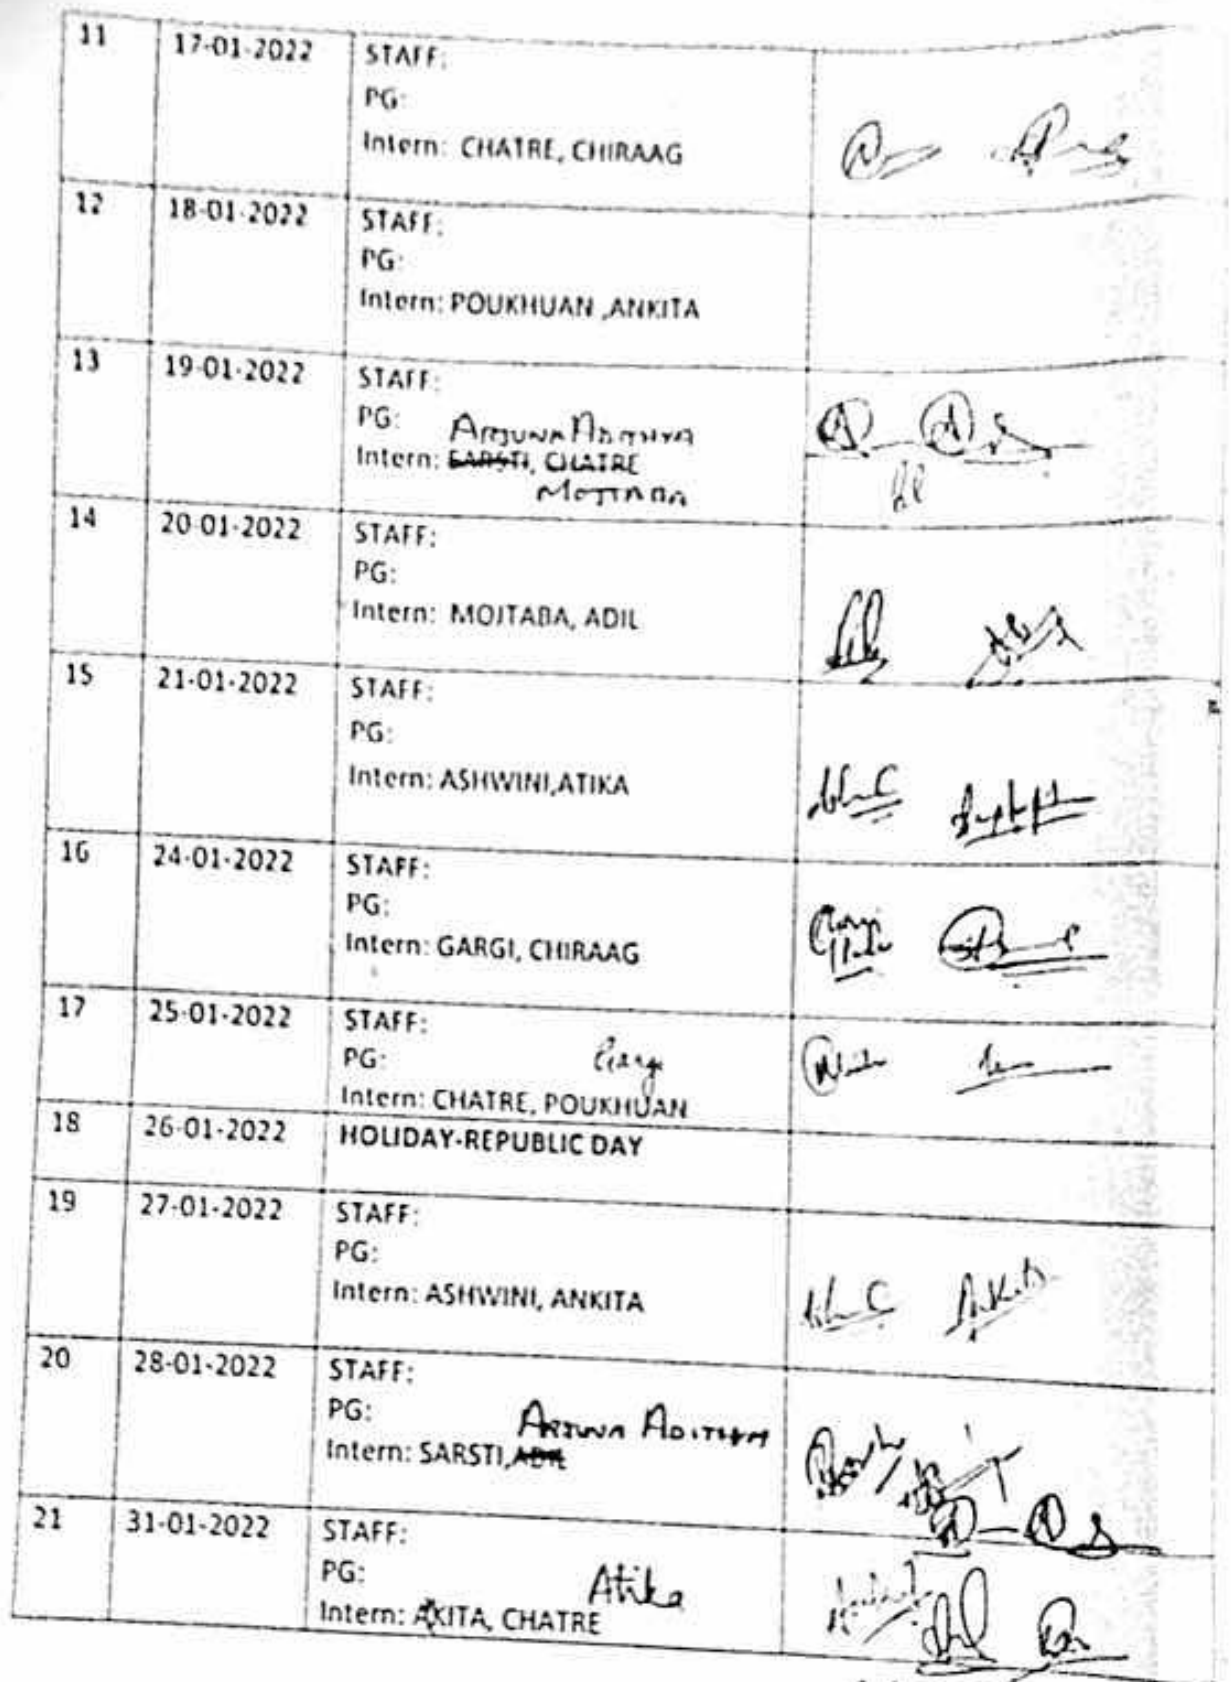 11 17-01-2022 STAFF:
PG:
Intern: CHATRE, CHIRAAG
12 18-01-2022 STAFF:
PG:
Intern: POUKHUAN ,ANKITA
13 19-01-2022 STAFF:
PG: ARJUNA ADITHYA
Intern: SARSTI, CHATRE
MOJTABA
14 20-01-2022 STAFF:
PG:
Intern: MOJTABA, ADIL
15 21-01-2022 STAFF:
PG:
Intern: ASHWINI,ATIKA
16 24-01-2022 STAFF:
PG:
Intern: GARGI, CHIRAAG
17 25-01-2022 STAFF:
PG: Gargi
Intern: CHATRE, POUKHUAN
18 26-01-2022 HOLIDAY-REPUBLIC DAY
19 27-01-2022 STAFF:
PG:
Intern: ASHWINI, ANKITA Ankita
20 28-01-2022 STAFF:
PG: ARJUNA ADITHYA
Intern: SARSTI,ADIL
21 31-01-2022 STAFF:
PG: Atika
Intern: AKITA, CHATRE